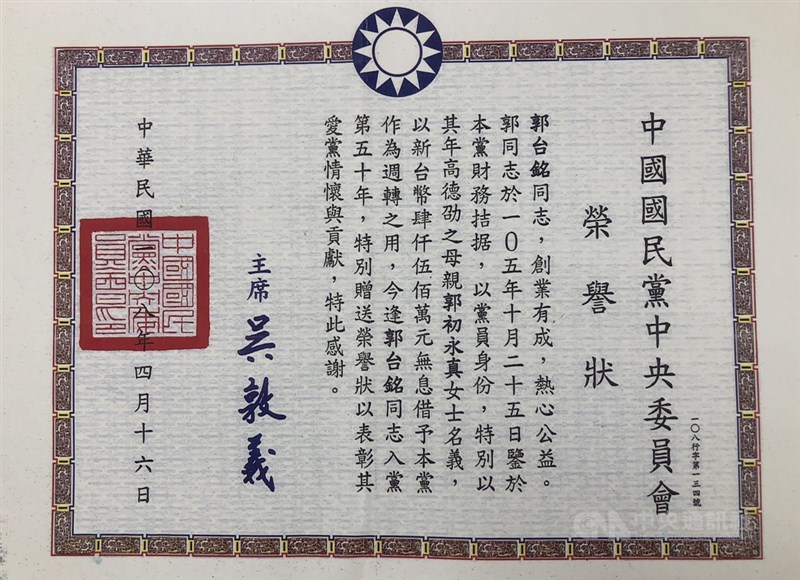 中國國民黨中央委員會
一〇八行字第一三四號
榮譽狀
郭台銘同志，創業有成，熱心公益。
郭同志於一０五年十月二十五日鑒於
本黨財務拮据，以黨員身份，特別以
其年高德劭之母親郭初永真女士名義，
以新台幣肆仟伍佰萬元無息借予本黨
作為週轉之用，今逢郭台銘同志入黨
第五十年，特別贈送榮譽狀以表彰其
愛黨情懷與貢獻，特此感謝。
主席 吳敦義
中華民國一〇八年四月十六日
中國國民黨中央委員會印
中央通訊社